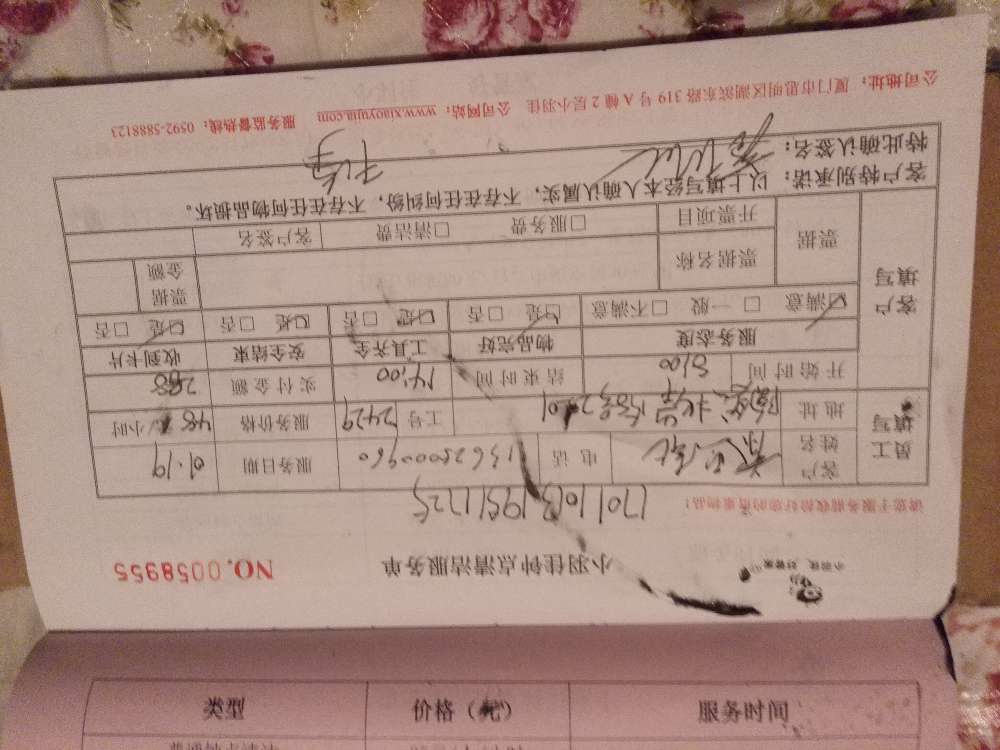 小羽佳 好管家
小羽佳钟点清洁服务单
NO. 0058955
请您于服务前收拾好您的贵重物品!
1701101319511725
员工填写
客户姓名 电话 13625000960 服务日期 01.19
地址 工号 2429 服务价格 48 /小时
开始时间 8:00 结束时间 14:00 实付金额 288
客户填写
服务态度 物品完好 工具齐全 安全结束 收到卡片
☑满意 □一般 □不满意 ☑是 □否 ☑是 □否 ☑是 □否 ☑是 □否
票据 票据名称 票据金额
开票项目 □服务费 □清洁费 客户签名
客户特别承诺: 以上填写经本人确认属实,不存在任何纠纷,不存在任何物品损坏。
特此确认签名:
公司地址: 厦门市思明区湖滨东路 319 号 A 幢 2 层小羽佳 公司网站: www.xiaoyujia.com 服务监督热线: 0592-5888123
类型 价格(元) 服务时间